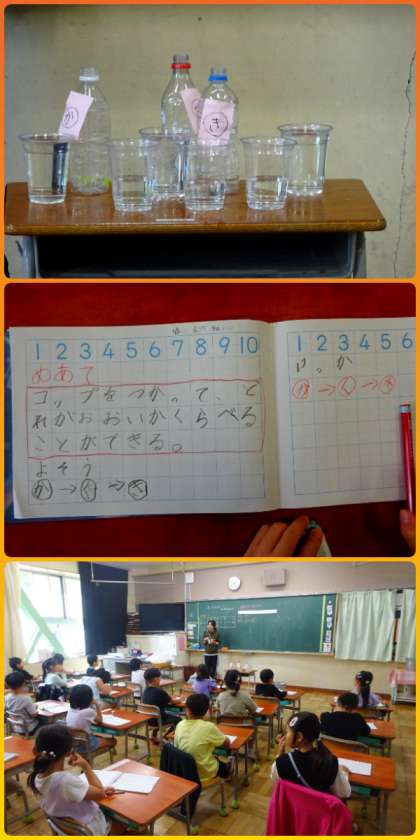 か
き
1 2 3 4 5 6 7 8 9 10
めあて
コップをつかって、ど
れがおおいかくらべる
ことができる。
よそう
か→く→き
1 2 3 4 5 6
けっか
か→く→き